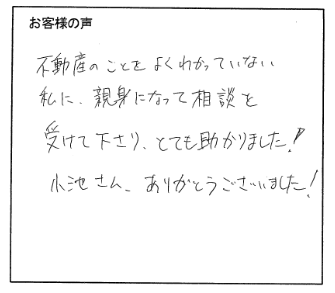 お客様の声
不動産のことをよくわかっていない
私に、親身になって相談を
受けて下さり、とても助かりました!
小池さん、ありがとうございました!